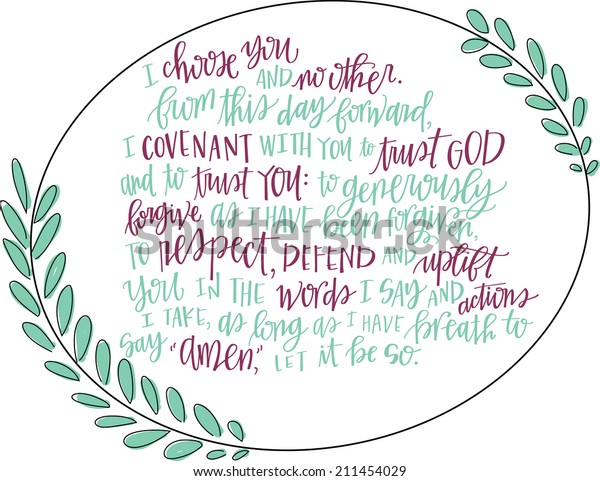 I choose you
AND no other.
from this day forward,
I COVENANT WITH YOU to trust GOD
and to trust YOU: to generously
forgive as I HAVE been forgiven,
TO respect, DEFEND AND uplift
you IN THE words I SAY AND actions
I TAKE, as long as I HAVE breath to
say "amen," LET it be so.
shutterstock
www.shutterstock.com · 211454029